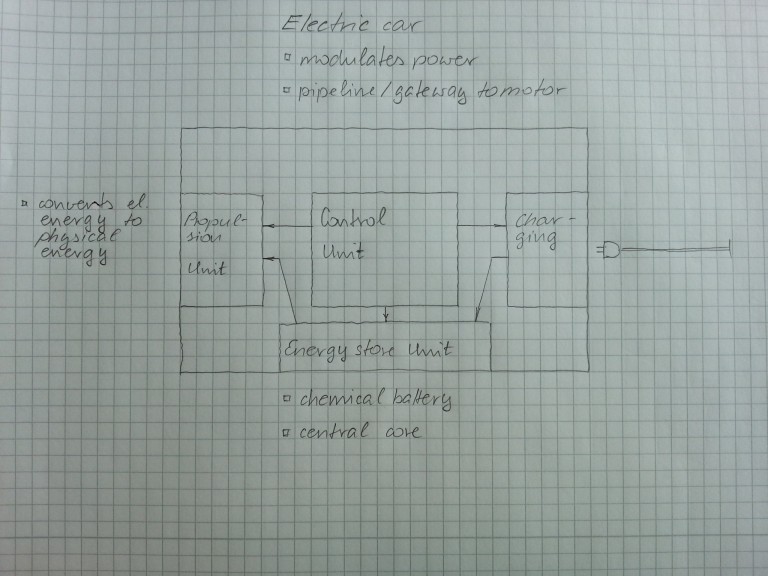 Electric car
▫ modulates power
▫ pipeline/gateway to motor
▫ converts el.
energy to
physical
energy
Propul-
sion
Unit
Control
Unit
Char-
ging
Energy store Unit
▫ chemical battery
▫ central core